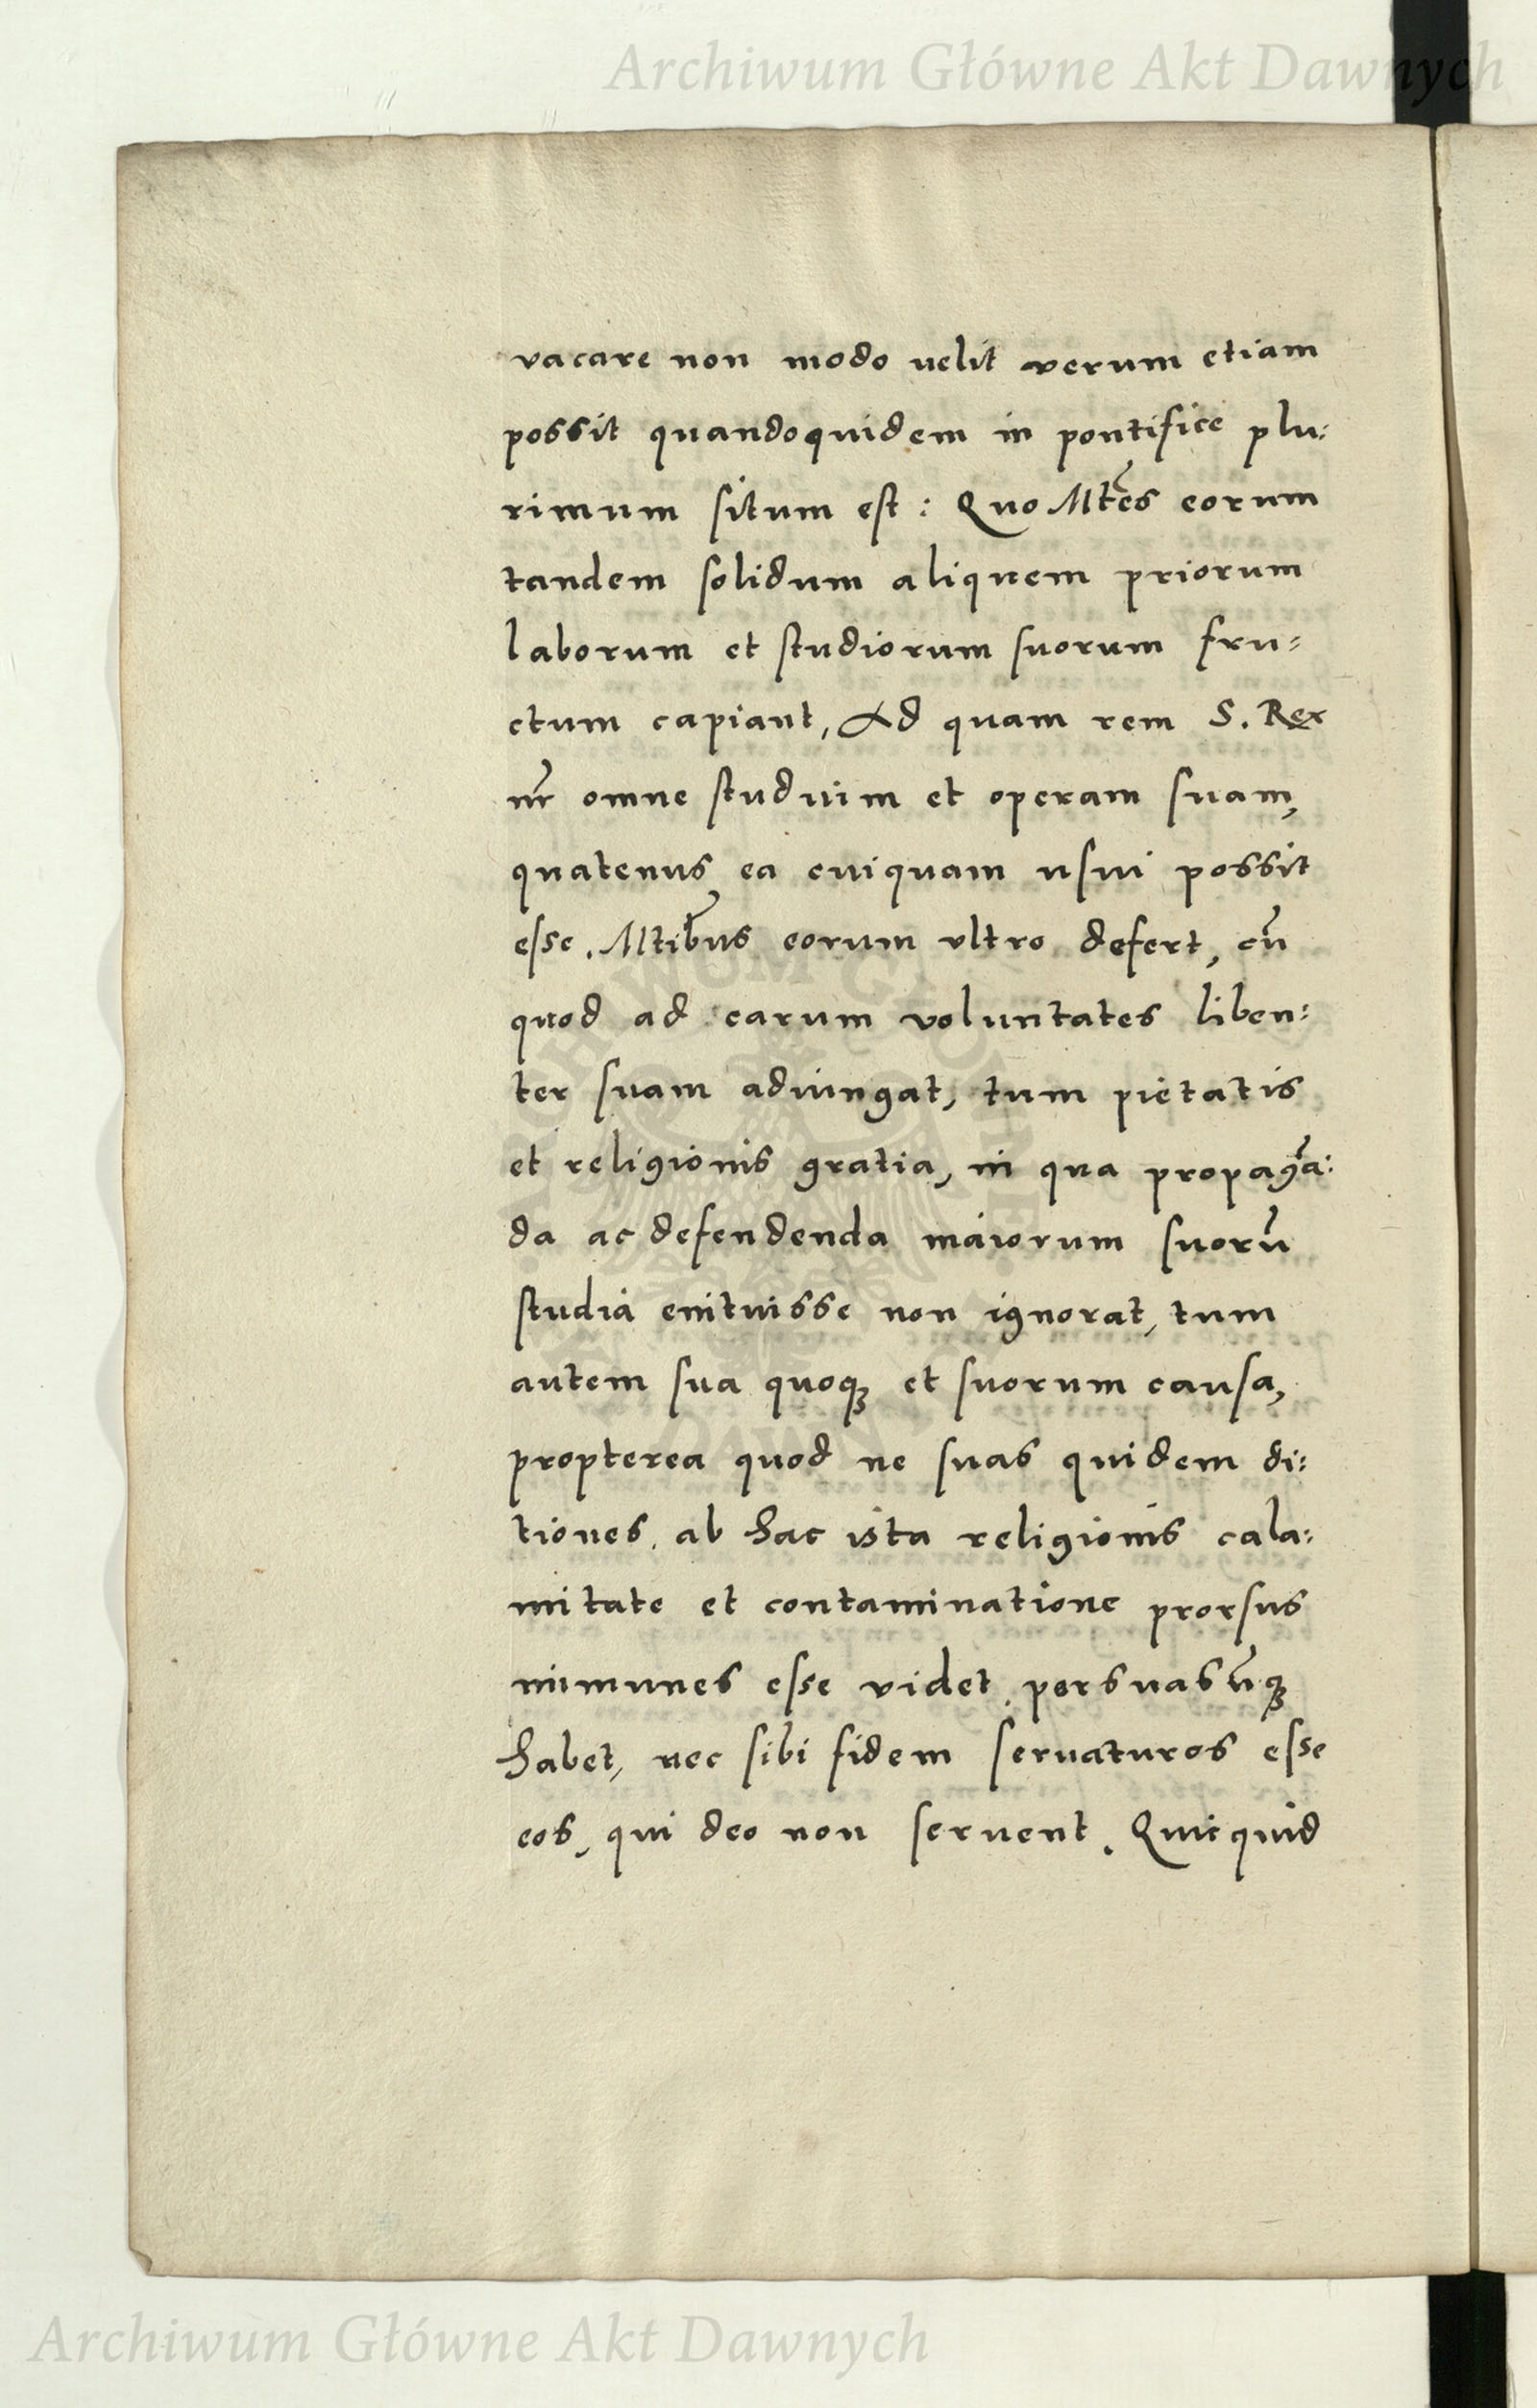 Archiwum Główne Akt Dawnych
vacare non modo uelit verum etiam
possit quandoquidem in pontifice plu:
rimum situm est: Quo Mtẽs eorum
tandem solidum aliquem priorum
laborum et studiorum suorum fru:
ctum capiant, Ad quam rem S. Rex
nr̃ omne studium et operam suam,
quatenus ea cuiquam usui possit
esse. Mtib̃us eorum ultro defert, cũ
quod ad earum voluntates liben:
ter suam adiungat, tum pietatis
et religionis gratia, in qua propagã:
da ac defendenda maiorum suorũ
studia enituisse non ignorat, tum
autem sua quoqꝫ et suorum causa,
propterea quod ne suas quidem di:
tiones. ab hac ista religionis cala:
mitate et contaminatione prorsus
immunes esse videt. persuasũqꝫ
habet, nec sibi fidem seruaturos esse
eos, qui deo non seruent. Quicquid
Archiwum Główne Akt Dawnych